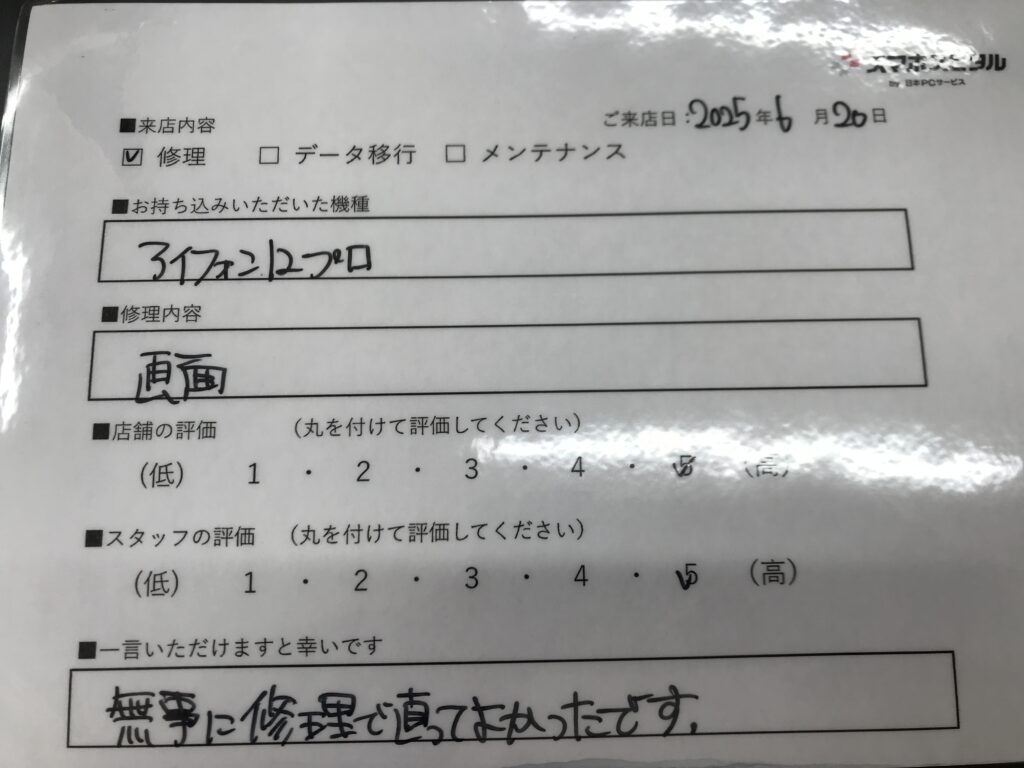 スマホスピタル
by 日本PCサービス
ご来店日:2025年6月20日
■来店内容
☑ 修理 □ データ移行 □ メンテナンス
■お持ち込みいただいた機種
アイフォン12プロ
■修理内容
画面
■店舗の評価 (丸を付けて評価してください)
(低) 1 ・ 2 ・ 3 ・ 4 ・ 5 (高)
■スタッフの評価 (丸を付けて評価してください)
(低) 1 ・ 2 ・ 3 ・ 4 ・ 5 (高)
■一言いただけますと幸いです
無事に修理で直ってよかったです。